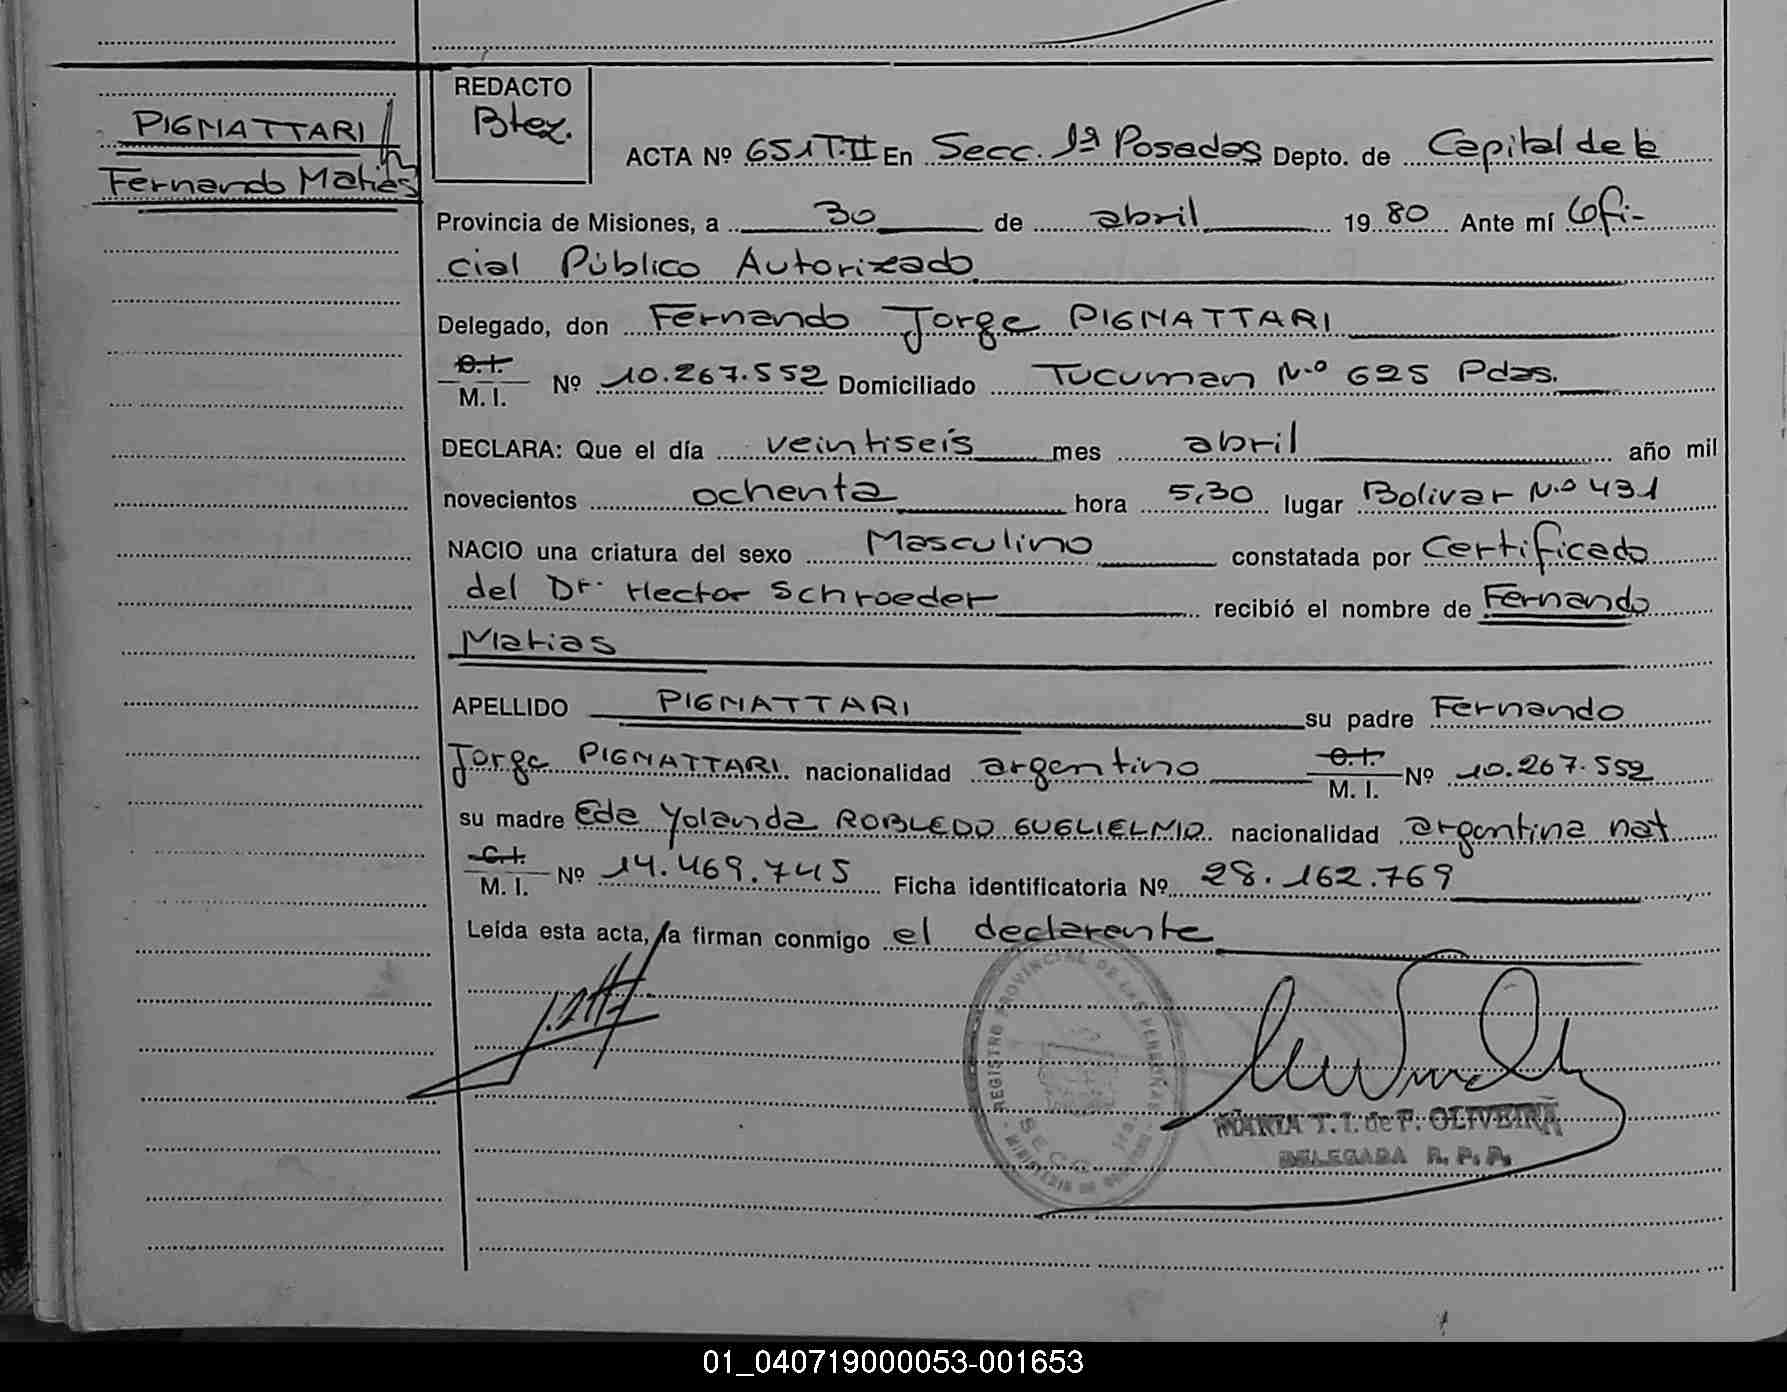 PIGNATTARI
Fernando Matias
REDACTO
Btez.
ACTA Nº 651 T.II En Secc. 1ª Posadas Depto. de Capital de la
Provincia de Misiones, a 30 de abril 19 80 Ante mí Ofi-
cial Público Autorizado
Delegado, don Fernando Jorge PIGNATTARI
C.I.
M. I. Nº 10.267.552 Domiciliado Tucuman N.º 625 Pdas.
DECLARA: Que el día veintiseis mes abril año mil
novecientos ochenta hora 5,30 lugar Bolivar N.º 431
NACIO una criatura del sexo Masculino constatada por Certificado
del Dr. Hector Schroeder recibió el nombre de Fernando
Matias
APELLIDO PIGNATTARI su padre Fernando
Jorge PIGNATTARI nacionalidad argentino C.I.
M. I. Nº 10.267.552
su madre Eda Yolanda ROBLEDO GUGLIELMO nacionalidad argentina nat
C.I.
M. I. Nº 14.469.745 Ficha identificatoria Nº 28.162.769
Leída esta acta, la firman conmigo el declarante
REGISTRO PROVINCIAL DE LAS PERSONAS
SECC.
MARIA T. I. de P. OLIVEIRA
DELEGADA R. P. P.
01_040719000053-001653